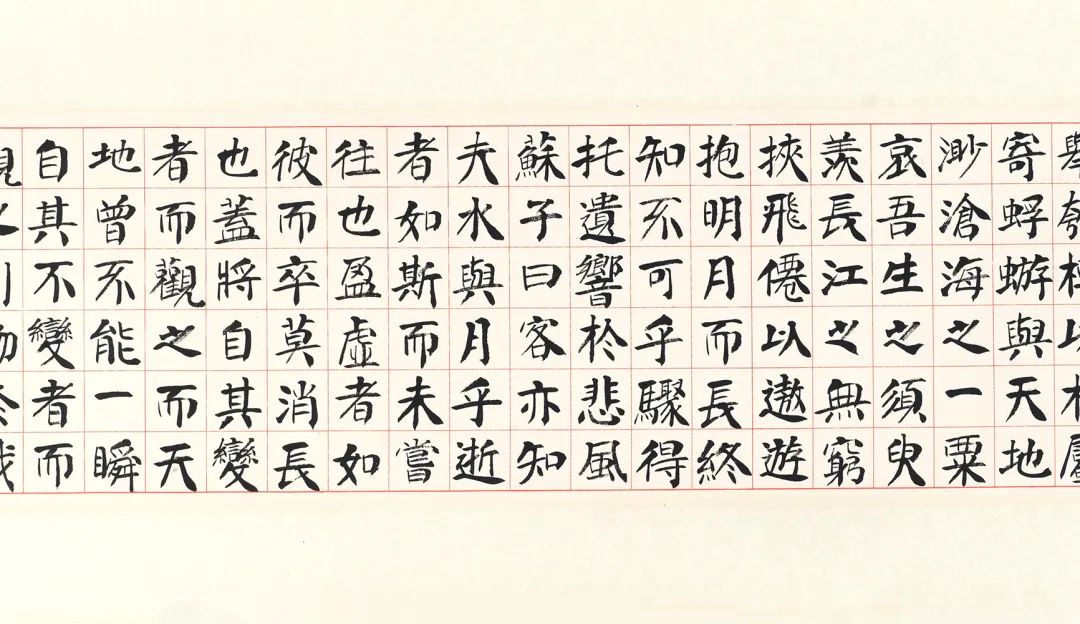 寄蜉蝣與天地
渺滄海之一粟
哀吾生之須臾
羨長江之無窮
挾飛僊以遨遊
抱明月而長終
知不可乎驟得
托遺響於悲風
蘇子曰客亦知
夫水與月乎逝
者如斯而未嘗
往也盈虛者如
彼而卒莫消長
也蓋將自其變
者而觀之而天
地曾不能一瞬
自其不變者而